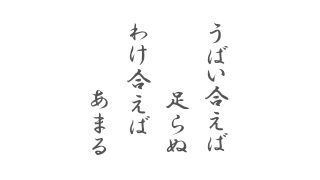 うばい合えば
足らぬ
わけ合えば
あまる